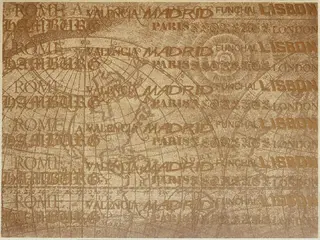 ROME VALENCIA MADRID FUNCHAL LISBON
HAMBURG PARIS LONDON
ROME VALENCIA MADRID FUNCHAL LISBON
HAMBURG PARIS LONDON
ROME VALENCIA MADRID FUNCHAL LISBON
HAMBURG PARIS LONDON
ROME VALENCIA MADRID FUNCHAL LISBON
HAMBURG PARIS LONDON
ROME VALENCIA MADRID FUNCHAL LISBON
HAMBURG PARIS LONDON
ROME VALENCIA MADRID FUNCHAL LISBON
HAMBURG PARIS LONDON